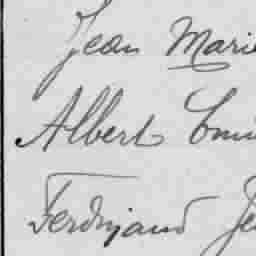 Jean Marie
Albert Emi
Ferdinand Je